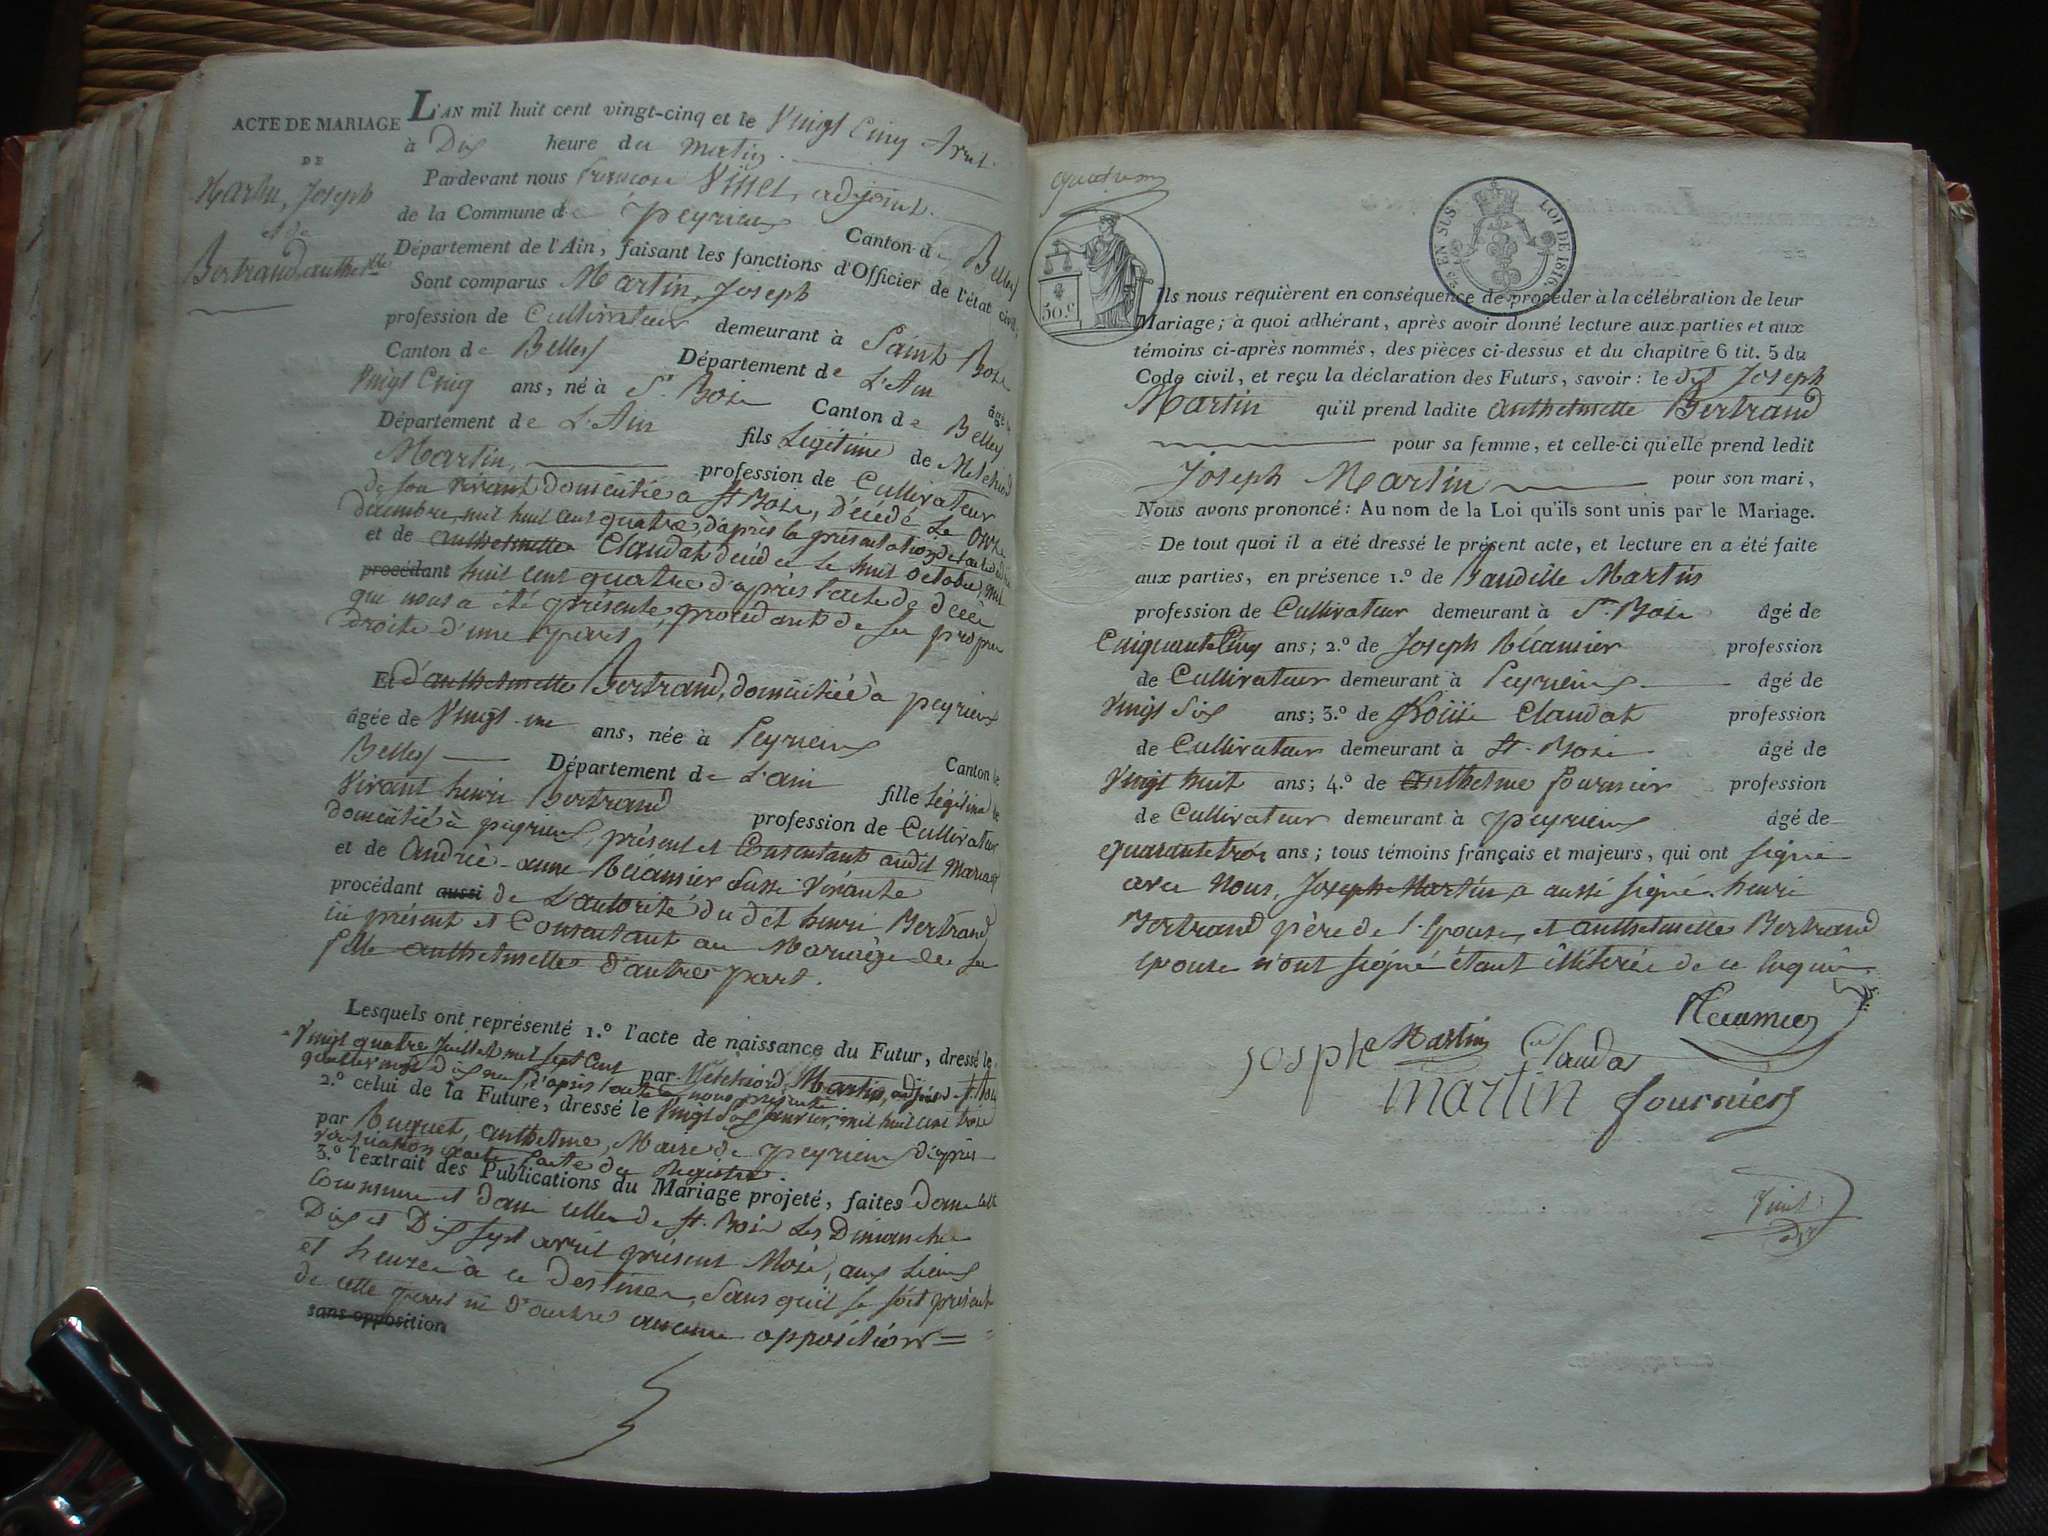 ACTE DE MARIAGE
DE
Martin, Joseph
et de
Bertrand anthelmette
L'AN mil huit cent vingt-cinq et le Vingt Cinq Avril
à Dix heure du matin.
Pardevant nous françois Vinet, adjoint
de la Commune de peyrieux Canton de Belley
Département de l'Ain, faisant les fonctions d'Officier de l'état civil,
Sont comparus Martin, Joseph
profession de Cultivateur demeurant à Saint Bois
Canton de Belley Département de L'Ain âgé de
Vingt Cinq ans, né à St. Bois Canton de Belley
Département de L'Ain fils Légitime de Melchiord
Martin, profession de Cultivateur
de son vivant domicilié a St Bois, décédé le onze
decembre, mil huit cent quatre, d'après la présentation de l'acte de décès
et de anthelmette Claudat décédée le huit octobre, mil
procédant huit cent quatre d'après l'acte de décès
qui nous a été présenté, procédant de sa propre
droite d'une part
Et d'anthelmette Bertrand, domiciliée à peyrieux
âgée de Vingt-un ans, née à Peyrieux Canton de
Belley Département de L'ain fille Légitime de
Vivant henri Bertrand profession de Cultivateur
domicilié à peyrieux, présent et Consentant audit mariage
et de Andrée-anne Récamier aussi Vivante
procédant aussi de L'autorité du dit henri Bertrand
ici présent et Consentant au Mariage de sa
fille anthelmette d'autre part.
Lesquels ont représenté 1.º l'acte de naissance du Futur, dressé le
Vingt quatre Juillet mil sept cent par Melchiord Martin, adjoint de St Bois
quatre vingt dix neuf, d'après l'acte à nous présenté
2.º celui de la Future, dressé le Vingt Six Janvier, mil huit cent trois
par Buquet, anthelme, Maire de peyrieux d'après
vérification exacte faite du Registre.
3.º l'extrait des Publications du Mariage projeté, faites dans cette
Commune et dans celle de St. Bois les Dimanches
Dix et Dix Sept avril présent Mois, aux Lieux
et heures à ce destinés, Sans qu'il se soit présenté
de cette part ni d'autres aucune opposition =
sans opposition
50.C
LOI DE 1816
EN SUS
Ils nous requièrent en conséquence de procéder à la célébration de leur
Mariage; à quoi adhérant, après avoir donné lecture aux parties et aux
témoins ci-après nommés, des pièces ci-dessus et du chapitre 6 tit. 5 du
Code civil, et reçu la déclaration des Futurs, savoir: le dit Joseph
Martin qu'il prend ladite anthelmette Bertrand
pour sa femme, et celle-ci qu'elle prend ledit
Joseph Martin pour son mari,
Nous avons prononcé: Au nom de la Loi qu'ils sont unis par le Mariage.
De tout quoi il a été dressé le présent acte, et lecture en a été faite
aux parties, en présence 1.º de Baudille Martin
profession de Cultivateur demeurant à St. Bois âgé de
Cinquante Cinq ans; 2.º de Joseph Récamier profession
de Cultivateur demeurant à Peyrieux âgé de
Vingt Six ans; 3.º de Claudat profession
de Cultivateur demeurant à St. Bois âgé de
Vingt huit ans; 4.º de anthelme fournier profession
de Cultivateur demeurant à peyrieux âgé de
quarante trois ans; tous témoins français et majeurs, qui ont signé
avec Nous, Joseph Martin a aussi signé. henri
Bertrand père de l'Epouse, et anthelmette Bertrand
epouse n'ont signé étant illitérée de ce Enquis.
Récamier
Josphe Martin Claudat
martin fournier
Vinet